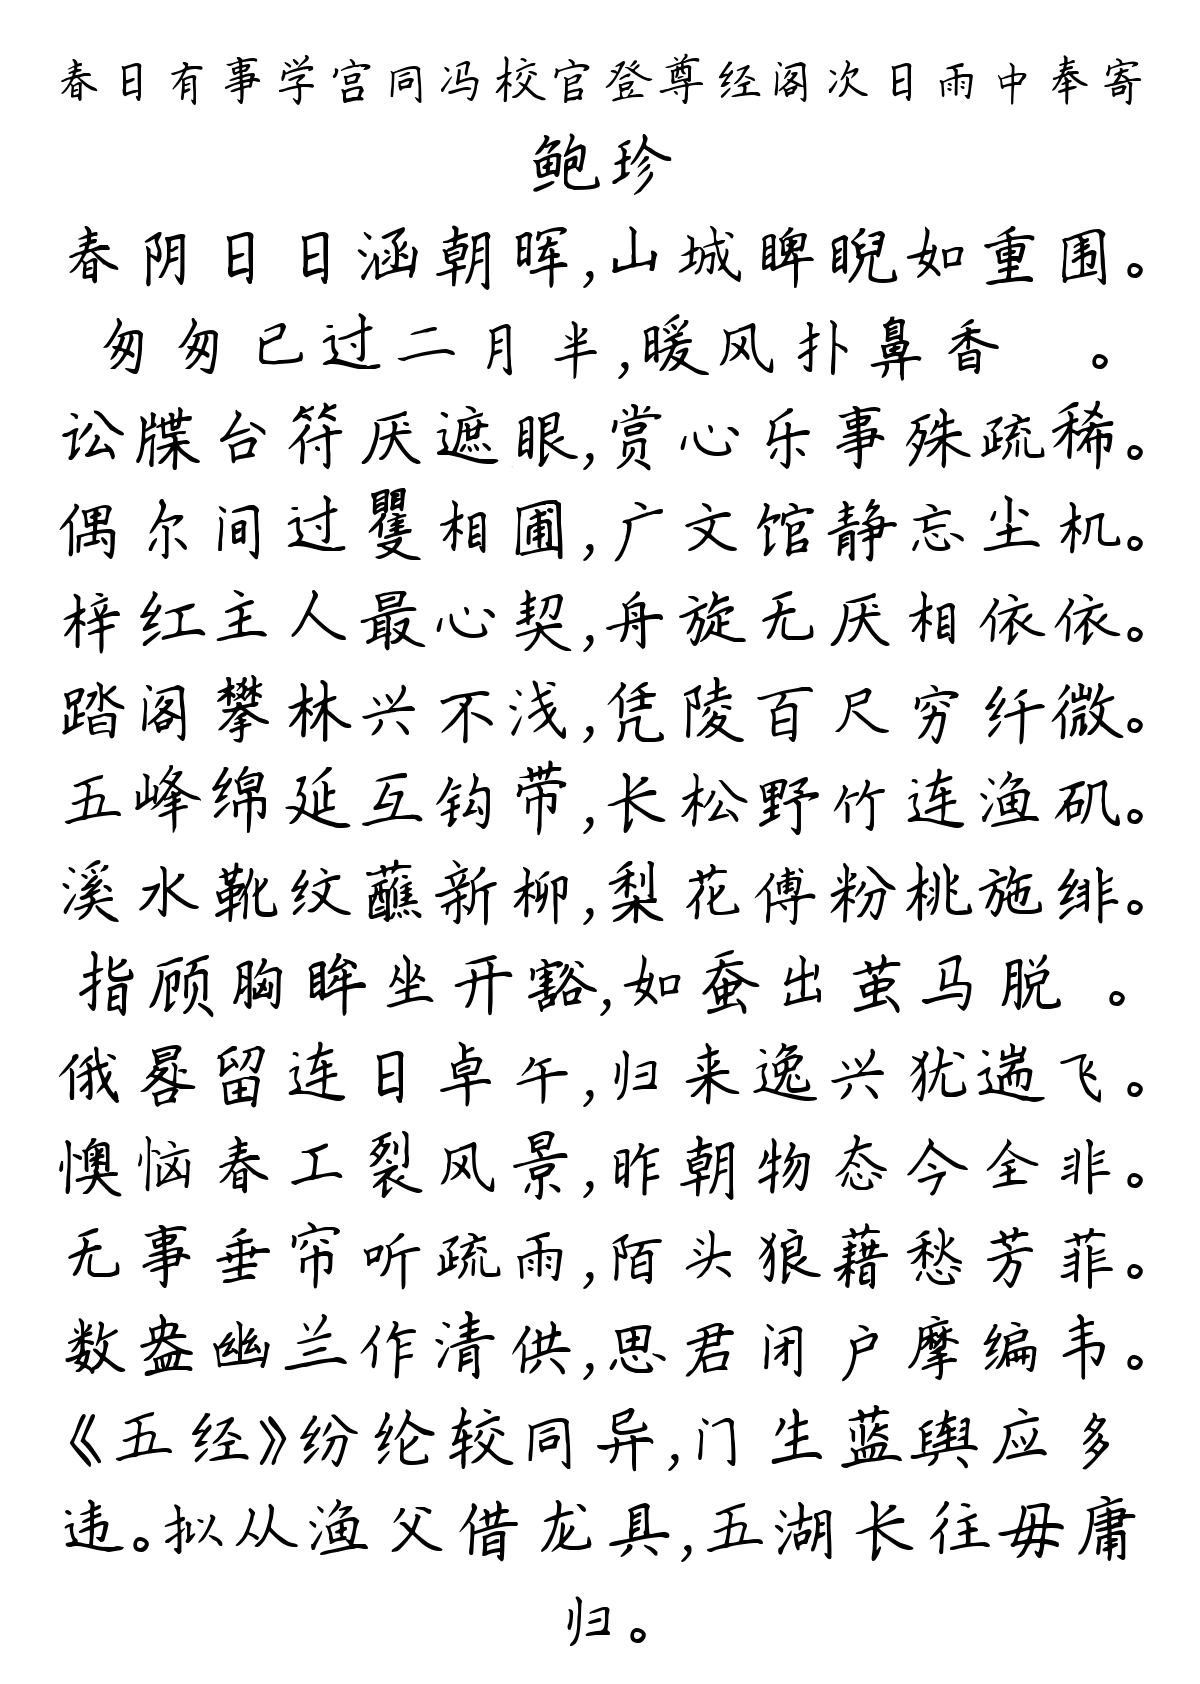 春日有事学宫同冯校官登尊经阁次日雨中奉寄
鲍珍
春阴日日涵朝晖,山城睥睨如重围。
匆匆已过二月半,暖风扑鼻香 。
讼牒台符厌遮眼,赏心乐事殊疏稀。
偶尔间过矍相圃,广文馆静忘尘机。
梓红主人最心契,舟旋无厌相依依。
踏阁攀林兴不浅,凭陵百尺穷纤微。
五峰绵延互钩带,长松野竹连渔矶。
溪水靴纹蘸新柳,梨花傅粉桃施绯。
指顾胸眸坐开豁,如蚕出茧马脱 。
俄晷留连日卓午,归来逸兴犹遄飞。
懊恼春工裂风景,昨朝物态今全非。
无事垂帘听疏雨,陌头狼藉愁芳菲。
数盎幽兰作清供,思君闭户摩编韦。
《五经》纷纶较同异,门生蓝舆应多
违。拟从渔父借龙具,五湖长往毋庸
归。